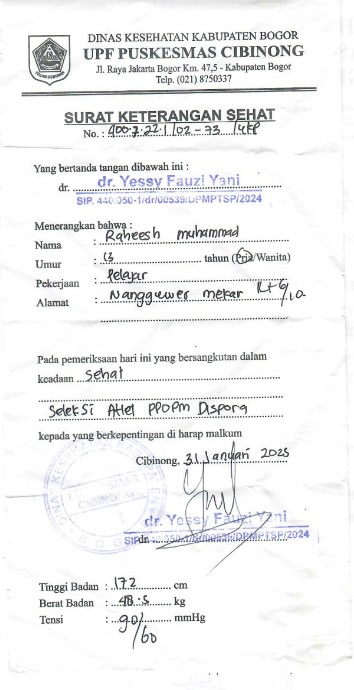 DINAS KESEHATAN KABUPATEN BOGOR
UPF PUSKESMAS CIBINONG
Jl. Raya Jakarta Bogor Km. 47,5 - Kabupaten Bogor
Telp. (021) 8750337
SURAT KETERANGAN SEHAT
No. : 400.7.22.1/02-73/YKP
Yang bertanda tangan dibawah ini :
dr. dr. Yessy Fauzi Yani
SIP. 440.350-1/dr/00539/DPMPTSP/2024
Menerangkan bahwa :
Nama : Raheesh muhammad
Umur : 13 tahun (Pria/Wanita)
Pekerjaan : Pelajar
Alamat : Nanggewer mekar Rt
Pada pemeriksaan hari ini yang bersangkutan dalam
keadaan Sehat
Seleksi Atlet PPOPM Dispora
kepada yang berkepentingan di harap malkum
Cibinong, 31 Januari 2025
dr. Yessy Fauzi Yani
SIP. 440.350-1/dr/00539/DPMPTSP/2024
dr.
Tinggi Badan : 172 cm
Berat Badan : 48.5 kg
Tensi : 90/60 mmHg